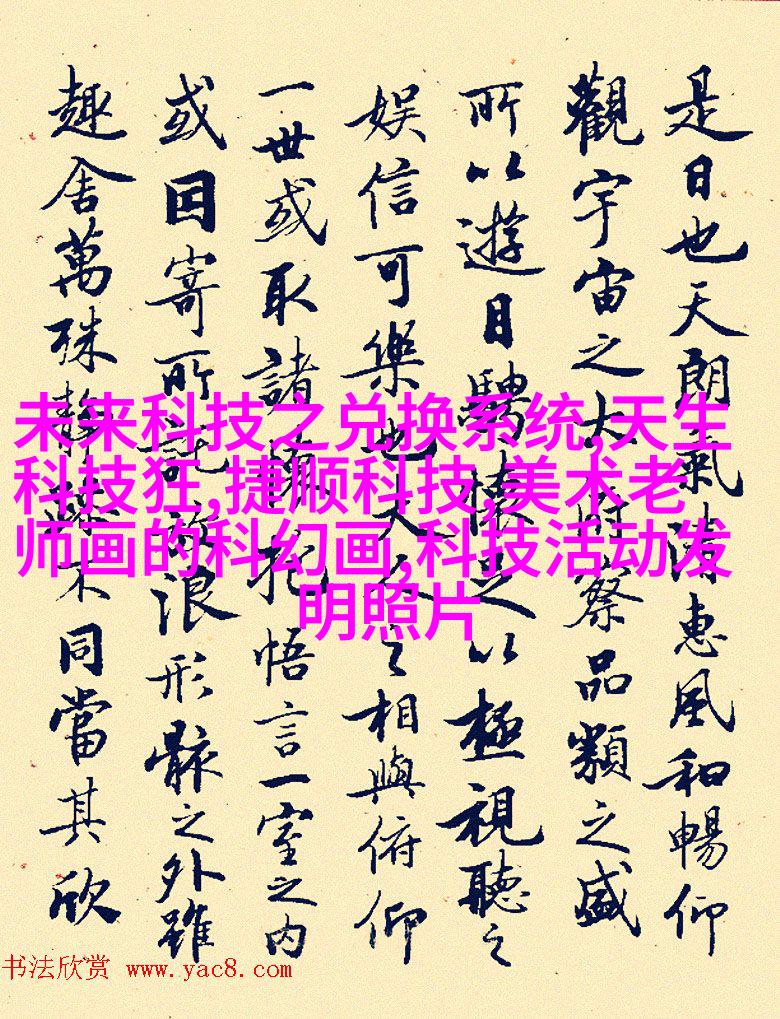 是日也天朗氣清惠風和暢仰
觀宇宙之大俯察品類之盛
所以遊目騁懷足以極視聽之
娱信可樂也夫人之相與俯仰
一世或取諸懷抱悟言一室之内
或因寄所託放浪形骸之外雖
趣舍萬殊静躁不同當其欣
未来科技之兑换系统,天生
科技狂,捷顺科技,美术老
师画的科幻画,科技活动发
明照片
书法欣赏 www.yac8.com